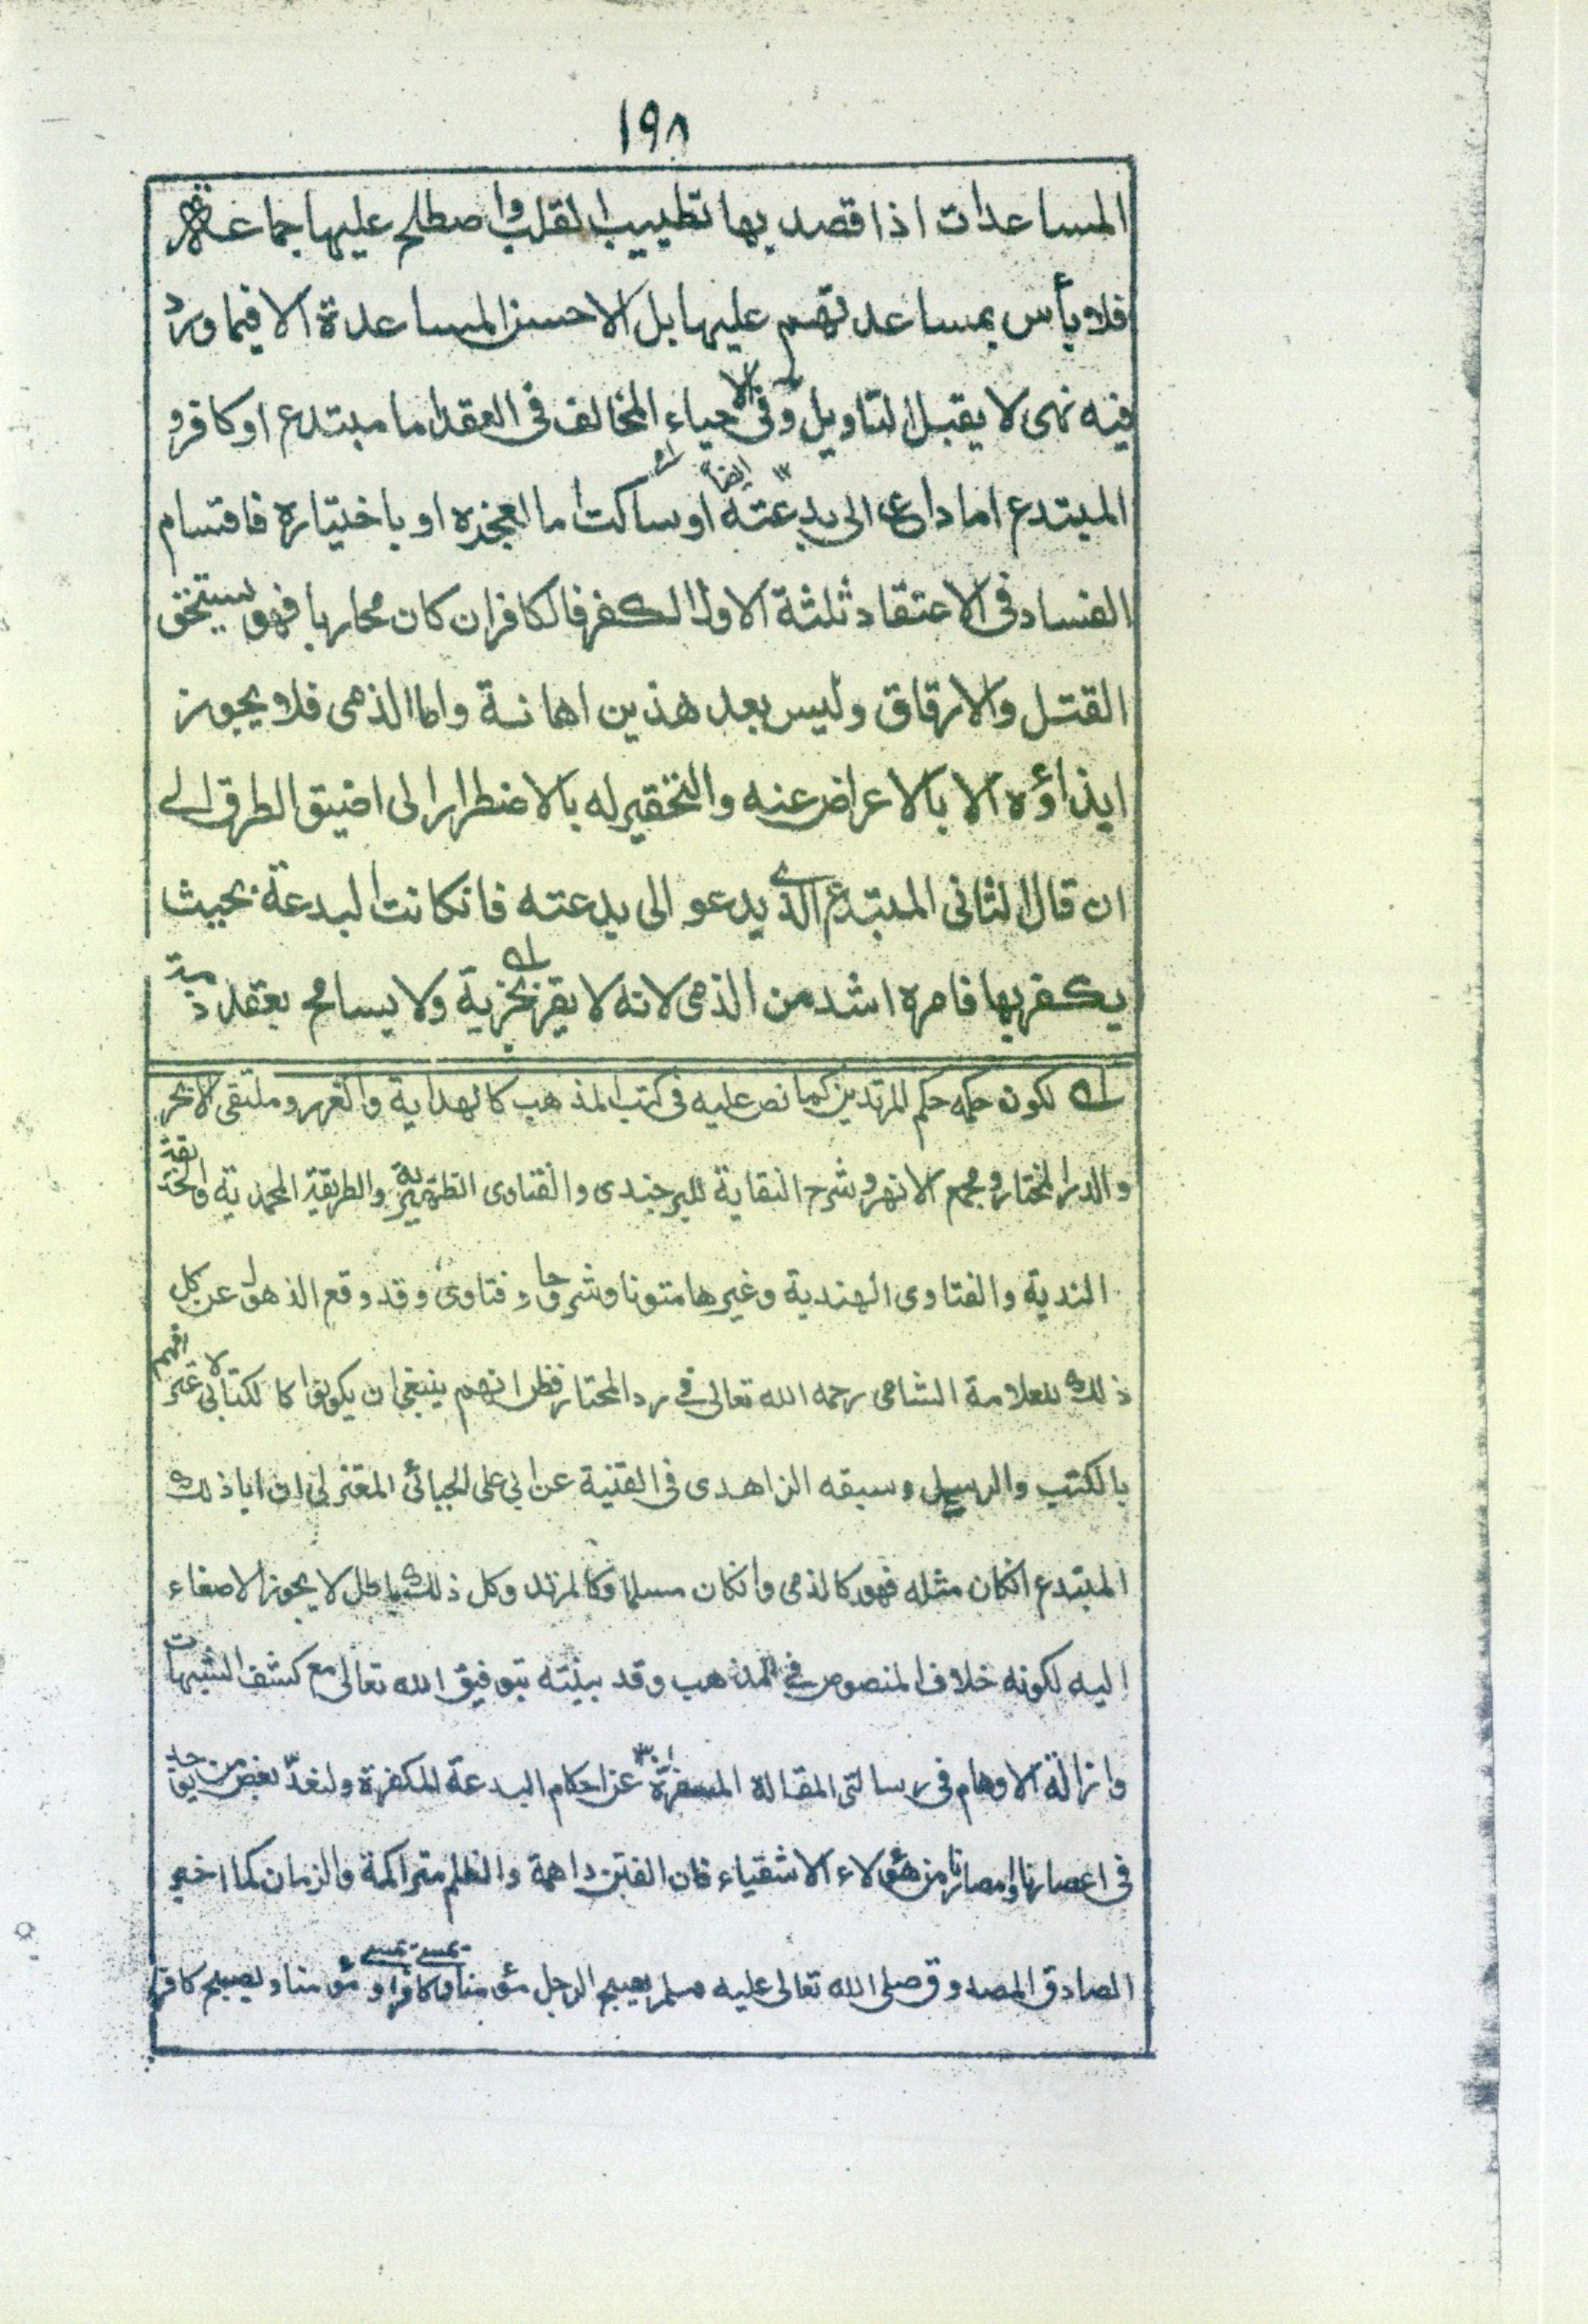 ١٩٨
المساعدات اذا قصد بها تطييب القلب واصطلح عليها جماعة
فلا بأس بمساعدتهم عليها بل الاحسن المساعدة الا فيما ورد
فيه نهى لا يقبل التاويل وفى الاحياء المخالف فى العقد اما مبتدع او كافر و
المبتدع اما داع الى بدعته او ساكت اما لعجزه او باختياره فاقسام
الفساد فى الاعتقاد ثلثة الاول الكفر فالكافر ان كان محاربا فهو يستحق
القتل والارقاق وليس بعد هذين اهانة واما الذمى فلا يجوز
ايذاؤه الا بالاعراض عنه والتحقير له بالاضطرار الى اضيق الطرق الى
ان قال الثانى المبتدع الذى يدعو الى بدعته فانكانت البدعة بحيث
يكفر بها فامره اشد من الذمى لانه لا يقر بجزية ولا يسامح بعقد ذمة
لكون حكمه حكم المرتدين كما نص عليه فى كتب المذهب كالهداية والغرر وملتقى الابحر
والدر المختار ومجمع الانهر وشرح النقاية للبرجندى والفتاوى الظهيرية والطريقة المحمدية والحديقة
الندية والفتاوى الهندية وغيرها متونا وشروحا وفتاوى وقد وقع الذهول عن كل
ذلك للعلامة الشامى رحمه الله تعالى فى رد المحتار فظن انهم ينبغى ان يكونوا كالكتابى لاعترافهم
بالكتب والرسل وسبقه الزاهدى فى القنية عن ابى على الجبائى المعتزلى ان ابا ذلك
المبتدع انكان مثله فهو كالذمى وانكان مسلما فكالمرتد وكل ذلك باطل لا يجوز الاصغاء
اليه لكونه خلاف المنصوص فى المذهب وقد بينته بتوفيق الله تعالى مع كشف الشبهات
وازالة الاوهام فى رسالتى المقالة المسفرة عن احكام البدعة المكفرة ولنعد بعض من يوجد
فى اعصارنا وامصارنا من هؤلاء الاشقياء فان الفتن داهمة والظلم متراكمة والزمان كما اخبر
الصادق المصدوق صلى الله تعالى عليه وسلم يصبح الرجل مؤمنا ويمسى كافرا ويمسى مؤمنا ويصبح كافرا